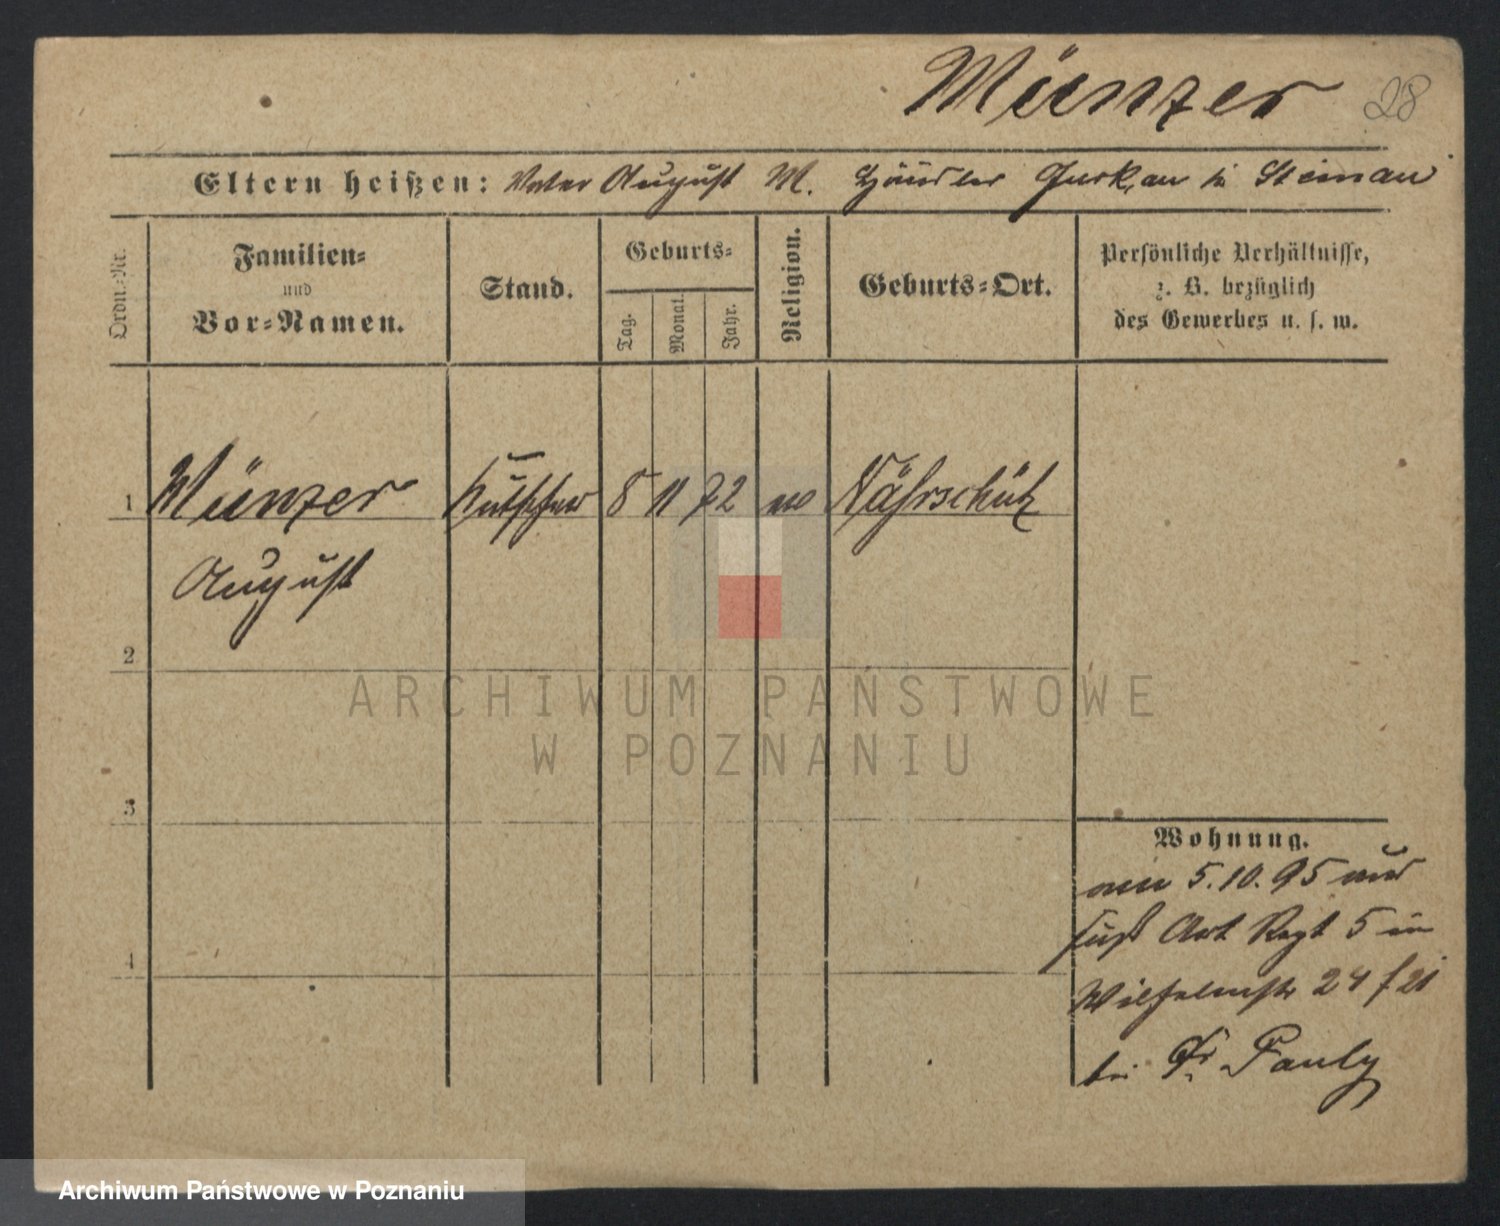 Münzer 28
Eltern heißen: Vater August M. Händler Gurkau in Steinau
Ordn.-Nr.
Familien-
und
Vor-Namen.
Stand.
Geburts-
Tag.
Monat.
Jahr.
Religion.
Geburts-Ort.
Persönliche Verhältnisse,
z. B. bezüglich
des Gewerbes u. s. w.
1 Münzer Kutscher 8 11 72 ev Nährschütz
August
2
ARCHIWUM PAŃSTWOWE
W POZNANIU
3
4
Wohnung.
5.10.95
Fuß Art Regt 5 in
Wilhelmstr 24
bei Fr. Pauly
Archiwum Państwowe w Poznaniu